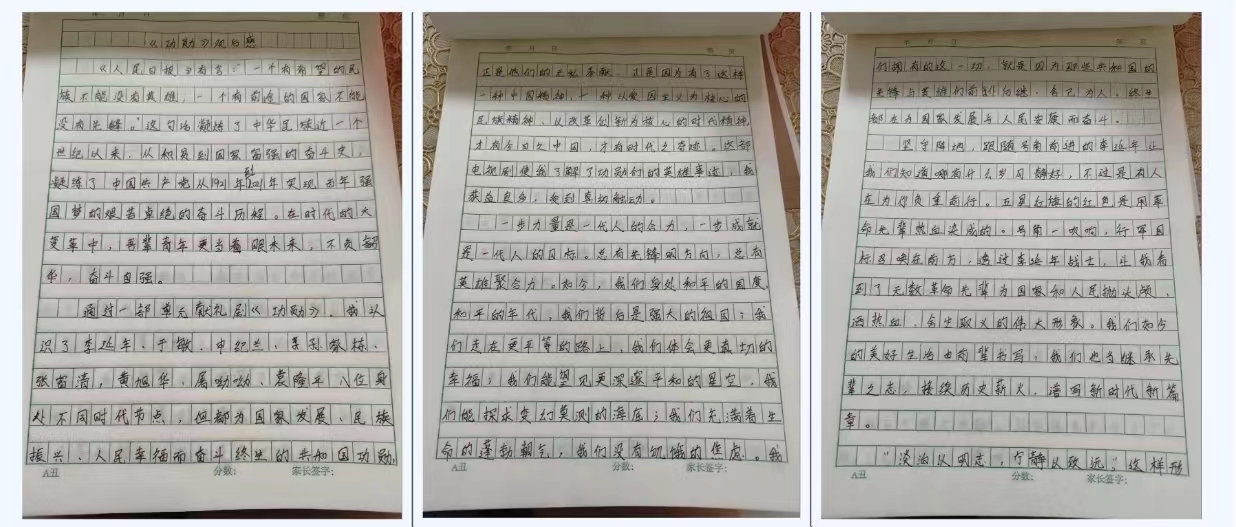 年 月 日
《功勋》观后感
《人民日报》有言:"一个有希望的民
族不能没有英雄,一个有前途的国家不能
没有先锋。"这句话凝练了中华民族近一个
世纪以来,从积贫到国家富强的奋斗史,
凝练了中国共产党从1921年到2021年实现百年强
国梦的艰苦卓绝的奋斗历程。在时代的大
变革中,吾辈青年更当着眼未来,不负韶
华,奋斗自强。
通过一部单元献礼剧《功勋》,我认
识了李延年、于敏、申纪兰、孙家栋、
张富清,黄旭华、屠呦呦、袁隆平八位身
处不同时代节点,但都为国家发展、民族
振兴、人民幸福而奋斗终生的共和国功勋,
A丑 分数: 家长签字:
年 月 日 第 页
正是他们的无私奉献,正是因为有了这样
一种中国精神,一种以爱国主义为核心的
民族精神、以改革创新为核心的时代精神,
才有今日之中国,才有时代之奇迹。这部
电视剧使我了解了功勋们的英雄事迹,我
获益良多,受到真切触动。
一步力量是一代人的合力,一步成就
是一代人的目标。总有先锋明方向,总有
英雄聚合力。如今,我们身处和平的国度,
和平的年代,我们背后是强大的祖国;我
们走在更平等的路上,我们体会更真切的
幸福;我们能望见更深邃平和的星空,我
们能探求变幻莫测的海底;我们充满着生
命的蓬勃朝气,我们没有饥饿的焦虑。我
A丑 分数: 家长签字:
年 月 日 第 页
们拥有的这一切,就是因为那些共和国的
先锋与英雄们前仆后继,舍己为人。终生
都在为国家发展与人民安康而奋斗。
坚守阵地,跟随号角前进的李延年让
我们知道哪有什么岁月静好,不过是有人
在为你负重前行。五星红旗的红色是用革
命先辈热血染成的。号角一吹响,行军目
标召唤在前方,透过李延年战士,让我看
到了无数革命先辈为国家和人民抛头颅、
洒热血,舍生取义的伟大形象。我们如今
的美好生活由前辈书写,我们也当继承先
辈之志,接续历史薪火,谱写新时代新篇
章。
"淡泊以明志,宁静以致远",这样形
A丑 分数: 家长签字: